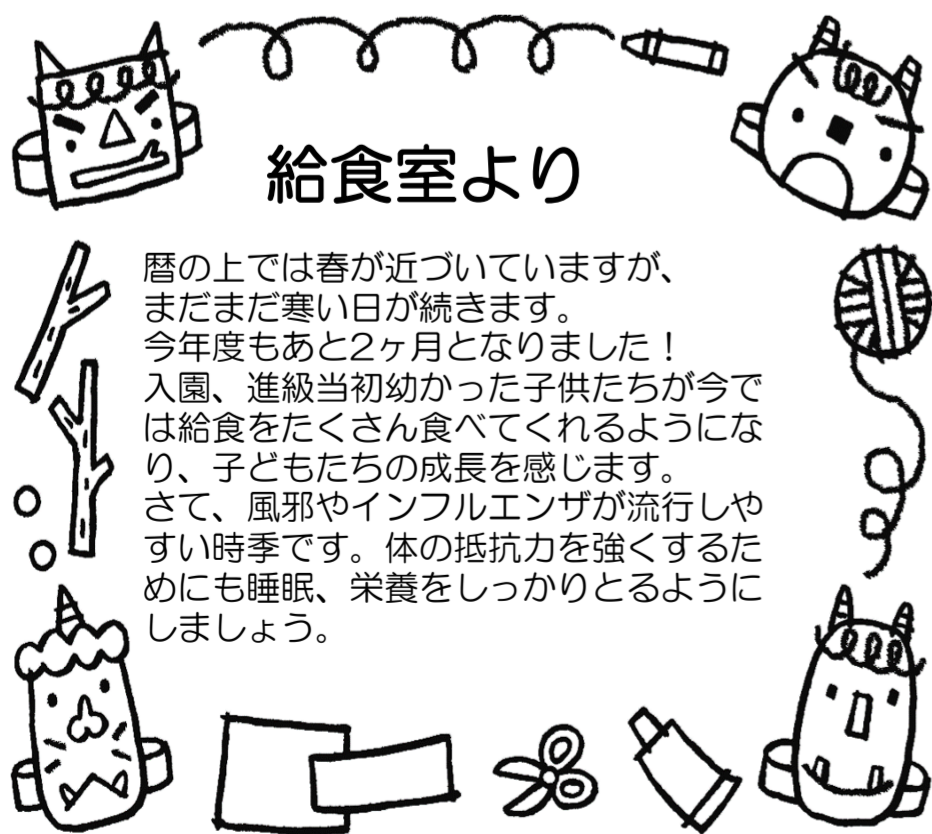 給食室より
暦の上では春が近づいていますが、
まだまだ寒い日が続きます。
今年度もあと2ヶ月となりました！
入園、進級当初幼かった子供たちが今で
は給食をたくさん食べてくれるようにな
り、子どもたちの成長を感じます。
さて、風邪やインフルエンザが流行しや
すい時季です。体の抵抗力を強くするた
めにも睡眠、栄養をしっかりとるように
しましょう。